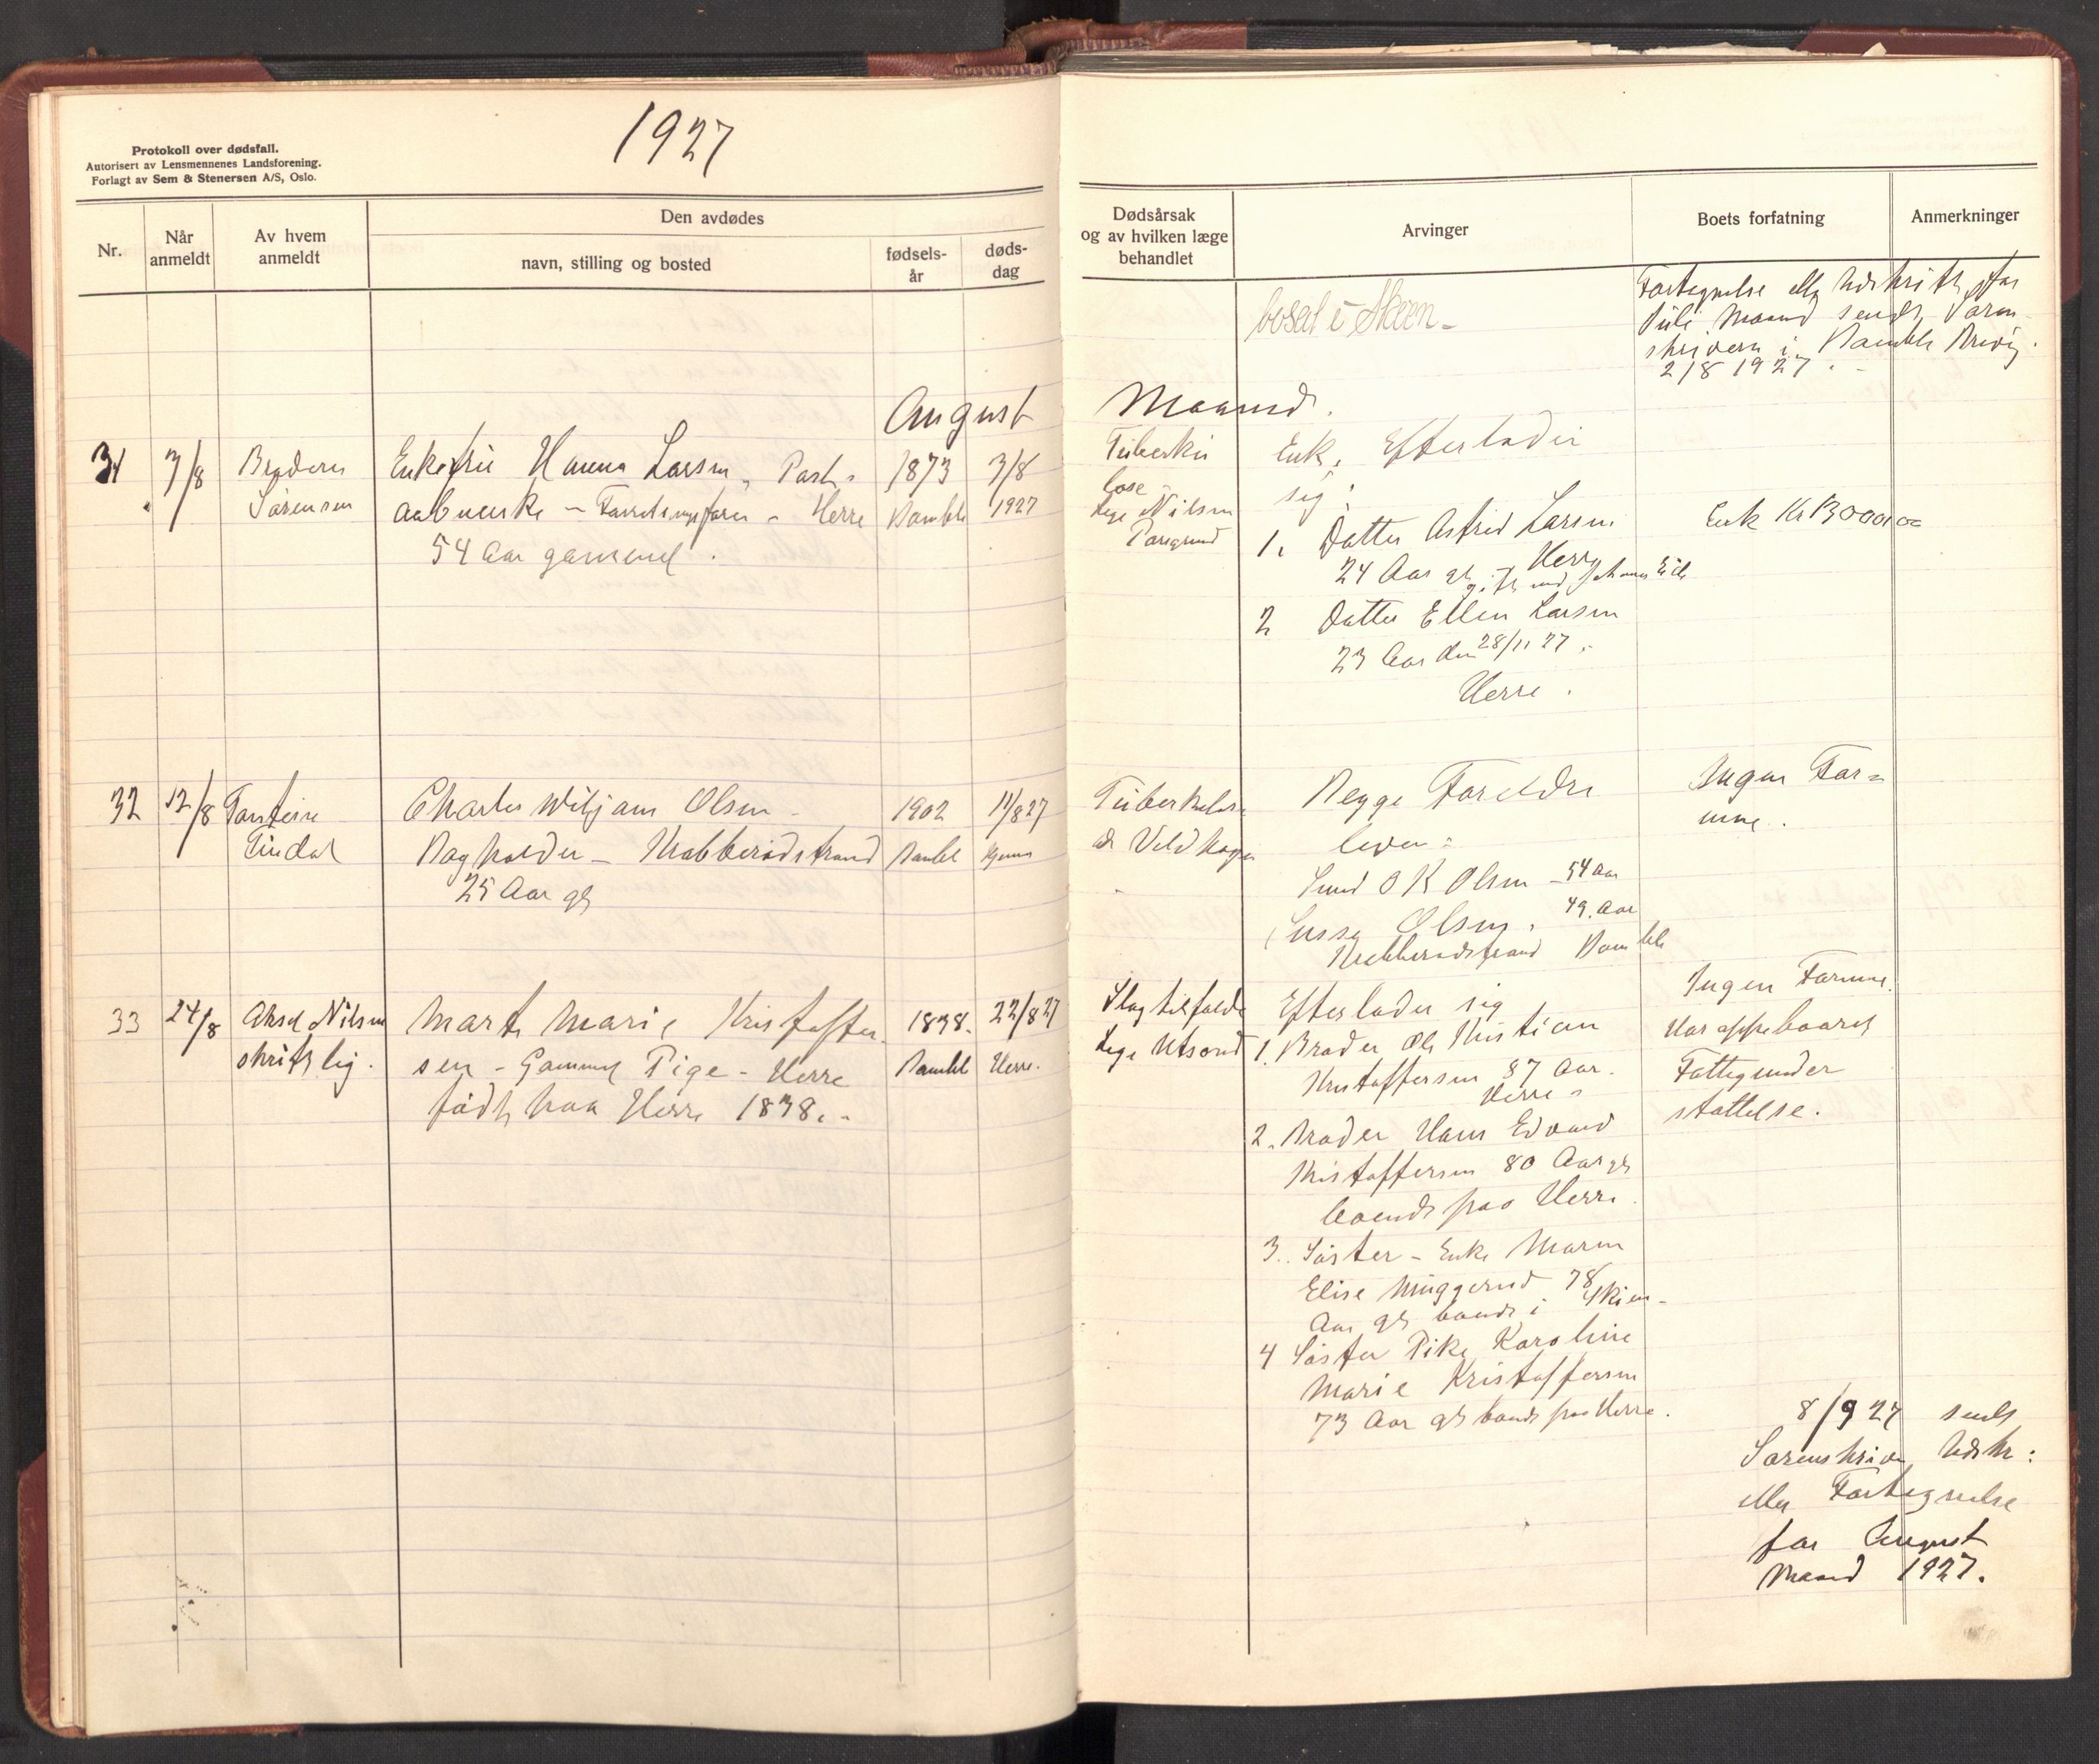 1927
Protokoll over dødsfall.
Autorisert av Lensmennenes Landsforening.
Forlagt av Sem & Stenersen A/S, Oslo.
Nr.
Når anmeldt
Av hvem anmeldt
Den avdødes
navn, stilling og bosted
fødsels-år
døds-dag
Dødsårsak
og av hvilken læge
behandlet
Arvinger
Boets forfatning
Anmerkninger
bosat i Skeen -
Fortegnelse eller Udskrift for
Juli Maaned sendt Soren-
skriveren i Bamble Brevig.
2/8 1927.
August Maaned.
31 3/8 Broderen Enkefru Hanna Larsen, Post- 1873 3/8
Sørensen aabnerske - Forretningsfører - Herre Bamble 1927
54 Aar gammel.
Tuberku
lose -
Læge Nilsen
Porsgrund
Enk. Efterlader
sig:
1. Datter Astrid Larsen
24 Aar gl - Herre
gift med Johannes
2 Datter Ellen Larsen
23 Aar den 28/11 27.
Herre.
Enk Kr 13000,00
32 12/8 Charles Wiljam Olsen - 1902 11/8 27
Tindal Bogholder - Krabberødstrand Bambl hjem
25 Aar gl
Tuberkulose
dr Veldhagen
Begge Foreldre
lever:
Smed O K Olsen - 54 Aar
Olsen. 49. Aar
Krabberødstrand Bamble
Ingen For=
mue.
33 24/8 Aksel Nilsen Marte Marie Kristoffer 1838. 22/8 27
skriftlig. sen - Gammel Pige - Herre Bambl Herre.
født paa Herre 1838. -
Slagtilfælde
Læge
Efterlader sig
1. Broder Ole Kristian
Kristoffersen 87 Aar.
Herre -
2. Broder Hans Edvard
Kristoffersen 80 Aar gl
boende paa Herre.
3. Søster - Enke Maren
Elise Muggerud 78
Aar gl boende i Skien -
4 Søster Pike Karoline
Marie Kristoffersen
73 Aar gl boende paa Herre.
Ingen Formue.
Har oppebaaret
Fattigunder
støttelse.
8/9 27 sendt
Sorenskriver Udskr:
eller Fortegnelse
for August
Maaned 1927.